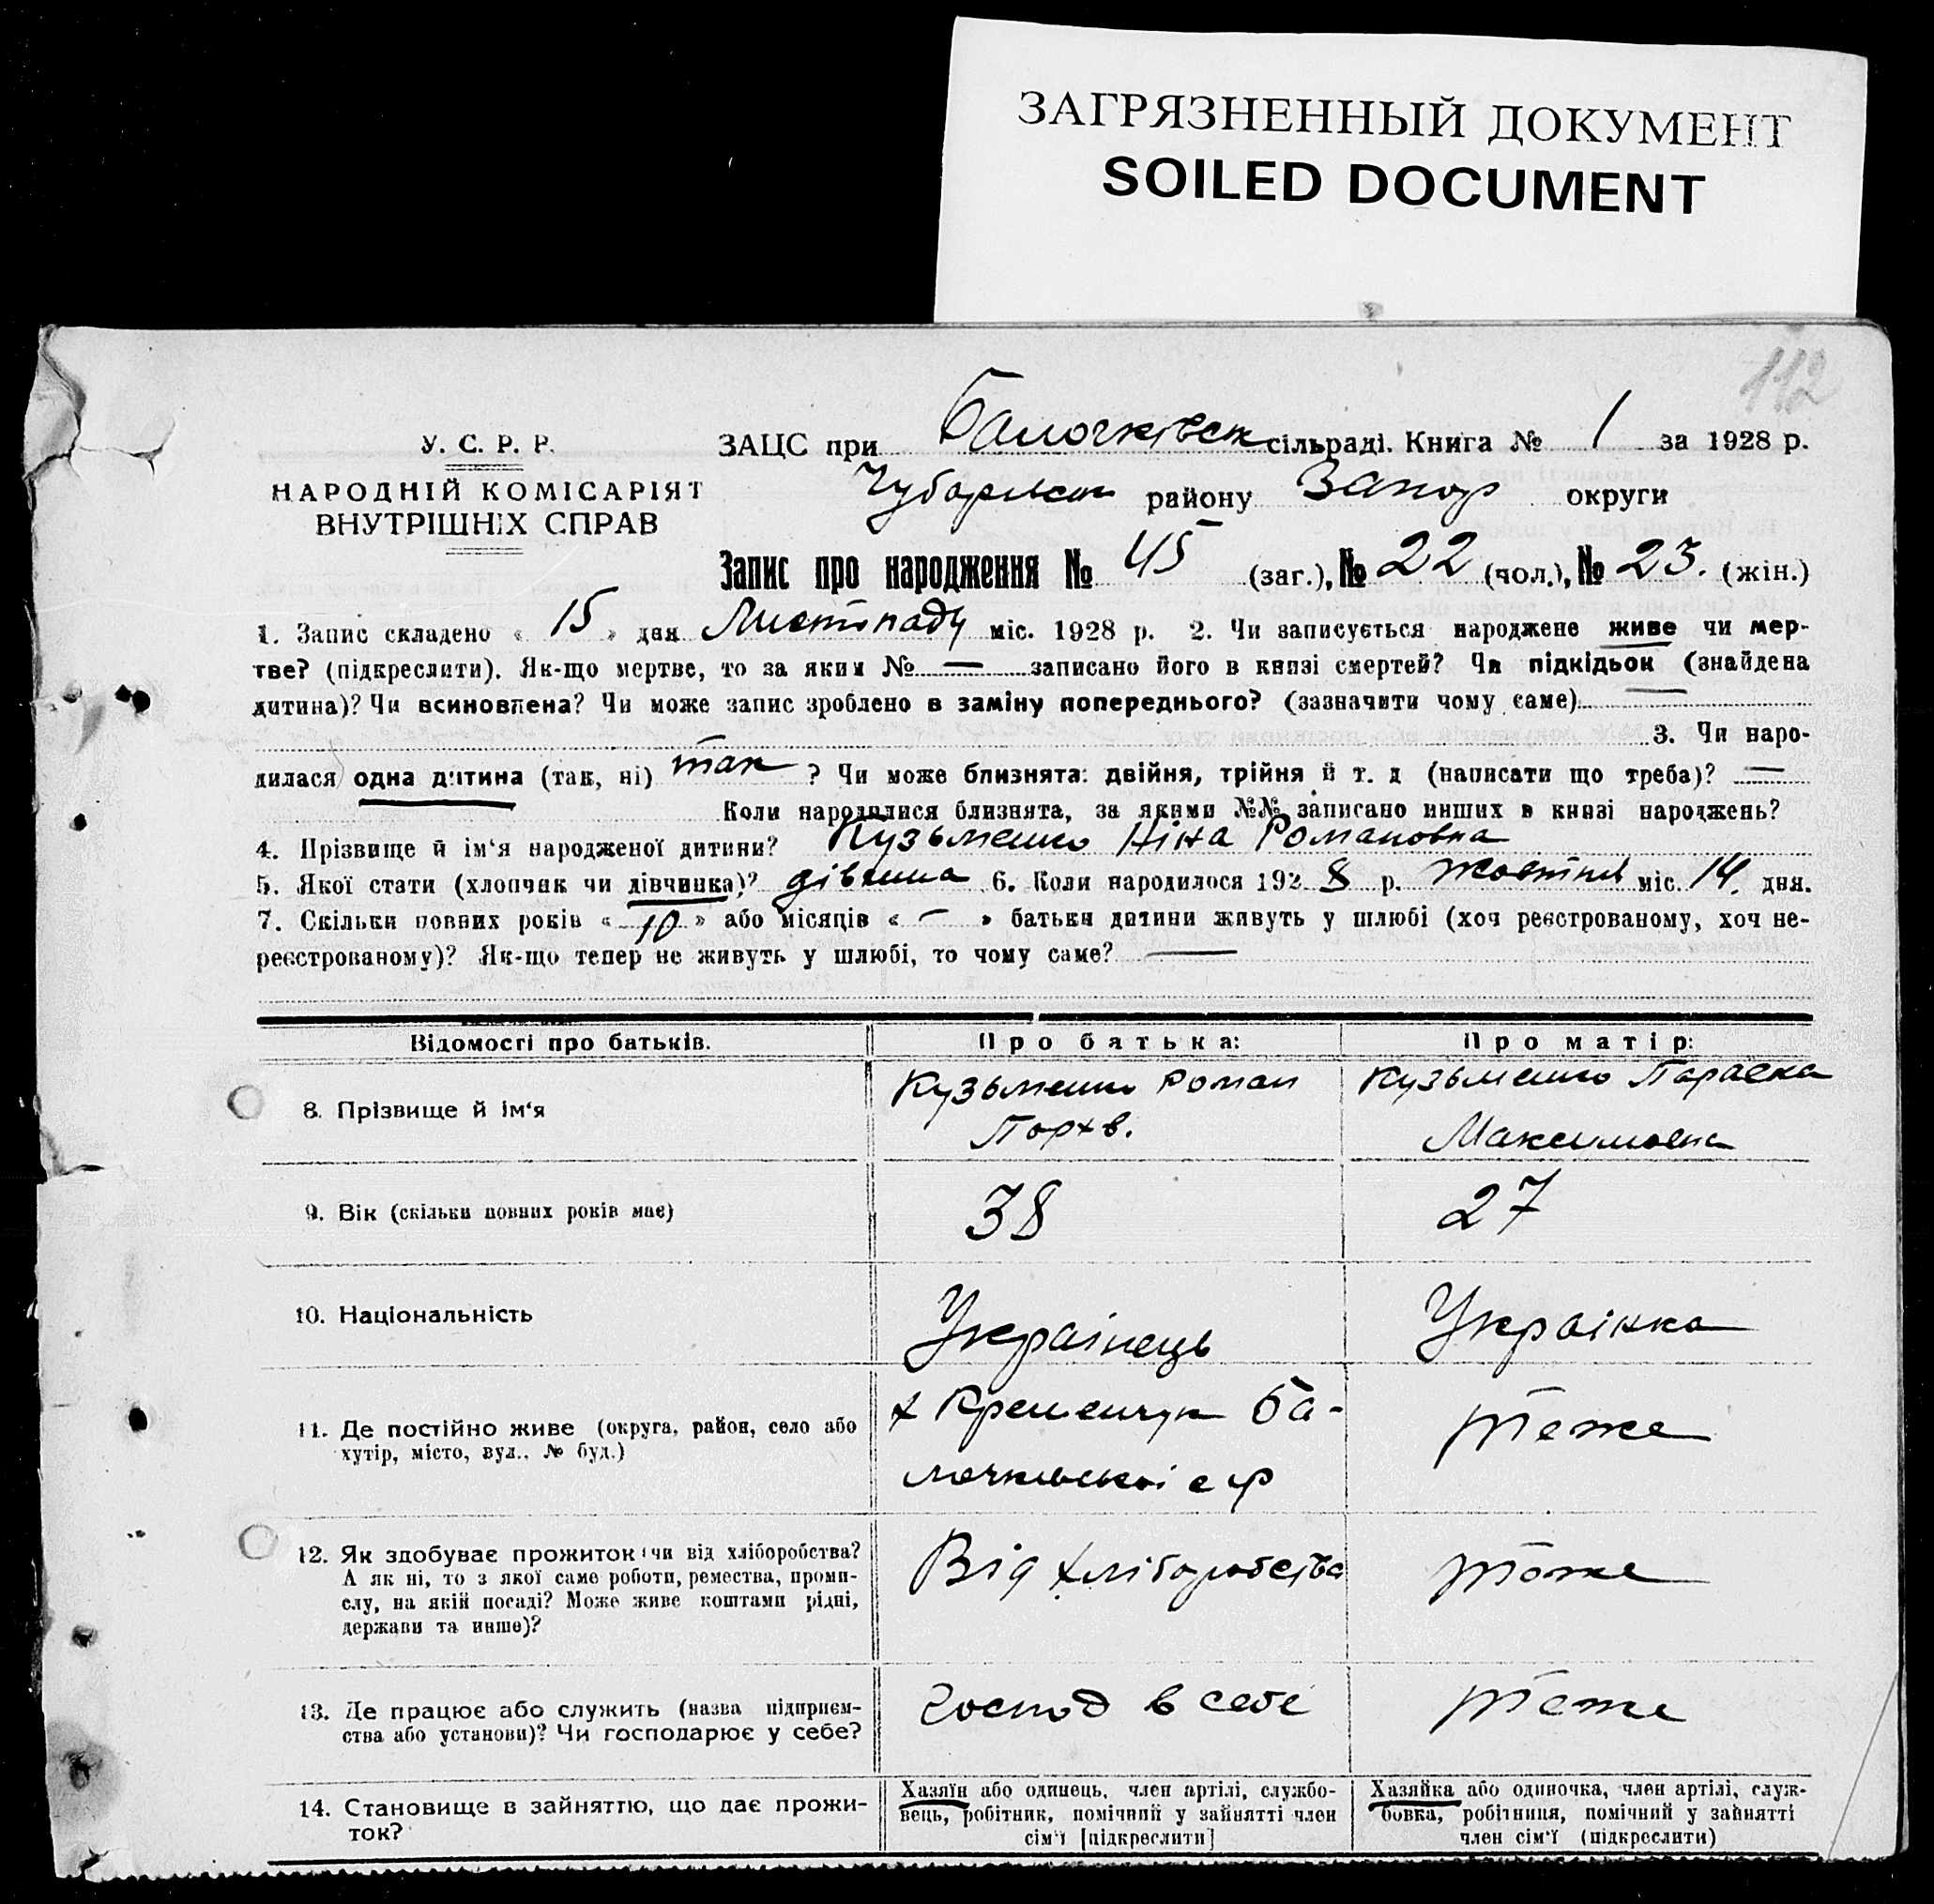 ЗАГРЯЗНЕННЫЙ ДОКУМЕНТ
SOILED DOCUMENT
112
У. С. Р. Р.
НАРОДНІЙ КОМІСАРІЯТ
ВНУТРІШНІХ СПРАВ
ЗАЦС при Балочківськ сільраді. Книга № 1 за 1928 р.
Чубарівськ району Запор округи
Запис про народження № 45 (заг.), № 22 (чол.), № 23. (жін.)
1. Запис складено « 15 » дня Листопаду міс. 1928 р. 2. Чи записується народжене живе чи мер-
тве? (підкреслити). Як-що мертве, то за яким № — записано його в книзі смертей? Чи підкідьок (знайдена
дитина)? Чи всиновлена? Чи може запис зроблено в заміну попереднього? (зазначити чому саме) —
3. Чи наро-
дилася одна дитина (так, ні) так ? Чи може близнята: двійня, трійня й т. д (написати що треба)? —
Коли народилися близнята, за якими №№ записано инших в книзі народжень?
4. Прізвище й ім‘я народженої дитини? Кузьменко Ніна Романовна
5. Якої стати (хлопчик чи дівчинка)? дівчина 6. Коли народилося 1928 р. жовтня міс. 14. дня.
7. Скільки повних років « 10 » або місяців « — » батьки дитини живуть у шлюбі (хоч реєстрованому, хоч не-
реєстрованому)? Як-що тепер не живуть у шлюбі, то чому саме? —
Відомості про батьків. Про батька: Про матір:
8. Прізвище й ім‘я Кузьменко Роман Кузьменко Параска
Порхв. Максимовна
9. Вік (скільки повних років має) 38 27
10. Національність Українець Українка
11. Де постійно живе (округа, район, село або х Кременчук Ба- теже
хутір, місто, вул.. № буд.) лочківської с р
12. Як здобуває прожиток: чи від хліборобства? Від хліборобства тоже
А як ні, то з якої саме роботи, ремества, проми-
слу, на якій посаді? Може живе коштами рідні,
держави та инше)?
13. Де працює або служить (назва підприєм- господ в себе теже
ства або установи)? Чи господарює у себе?
14. Становище в зайняттю, що дає прожи- Хазяїн або одинець, член артілі, службо- Хазяйка або одиночка, член артілі, служ-
ток? вець, робітник, помічний у зайнятті член бовка, робітниця, помічний у зайнятті
сім‘ї [підкреслити] член сім‘ї (підкреслити)